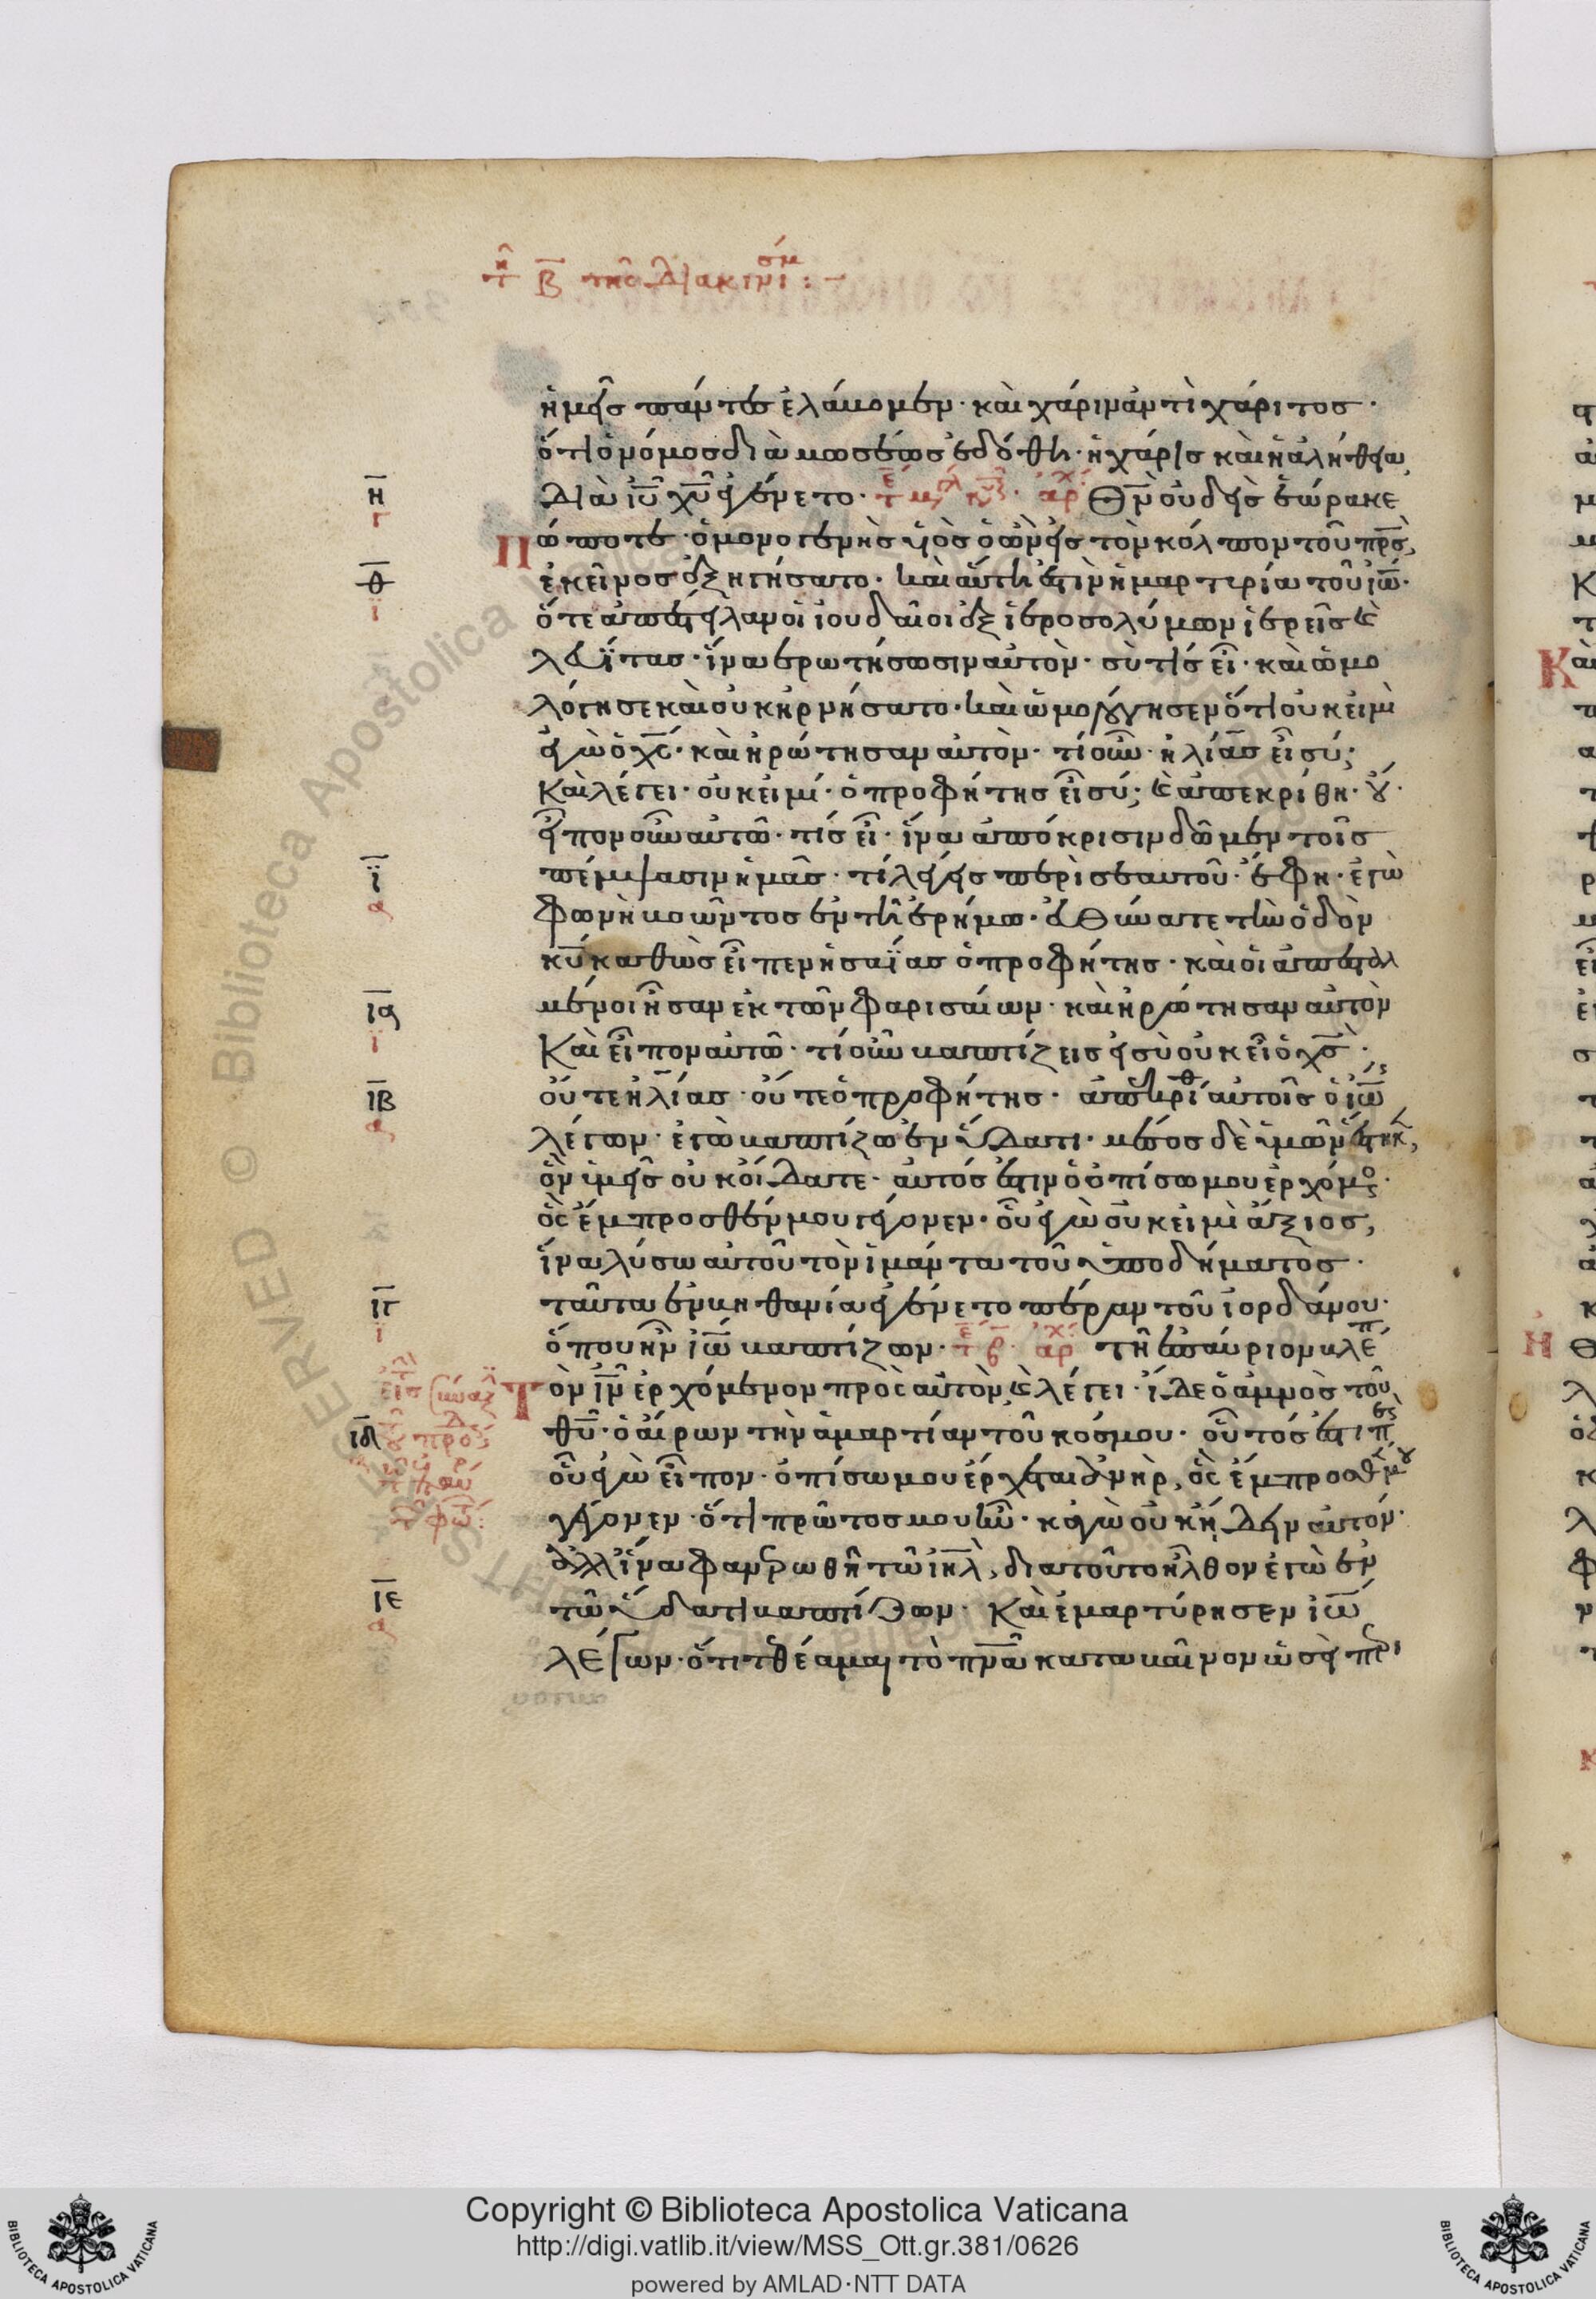 τῇ β τῆς διακινισίμ :-
ἡμεῖς πάντες ἐλάβομεν· καὶ χάριν ἀντὶ χάριτος·
ὅτι ὁ νόμος διὰ μωσέως ἐδόθη· ἡ χάρις καὶ ἡ ἀλήθεια
η διὰ ιυ χυ ἐγένετο· Θν οὐδεὶς ἑώρακε
Πώποτε· ὁ μονογενὴς υἱὸς ὁ ὢν εἰς τὸν κόλπον τοῦ πρς,
θ ἐκεῖνος ἐξηγήσατο. καὶ αὕτη ἐστὶν ἡ μαρτυρία τοῦ ιω·
ὅτε ἀπέστειλαν οἱ ἰουδαῖοι ἐξ ἱεροσολύμων ἱερεῖς καὶ
λευΐτας· ἵνα ἐρωτήσωσιν αὐτὸν· σὺ τίς εἶ· καὶ ὡμο
λόγησε καὶ οὐκ ἠρνήσατο· καὶ ὡμολόγησεν ὅτι οὐκ εἰμὶ
ἐγὼ ὁ χς· καὶ ἠρώτησαν αὐτὸν· τί οὖν· ἡλίας εἶ σύ;
Καὶ λέγει· οὐκ εἰμί· ὁ προφήτης εἶ σύ; καὶ ἀπεκρίθη· οὔ·
εἶπον οὖν αὐτῶ· τίς εἶ· ἵνα ἀπόκρισιν δῶμεν τοῖς
ϊ πέμψασιν ἡμᾶς· τί λέγεις περὶ σεαυτοῦ· ἔφη· ἐγὼ
φωνὴ βοῶντος ἐν τῆ ἐρήμω· εὐθύνατε τὴν ὁδὸν
κυ καθὼς εἶπεν ἡσαΐας ὁ προφήτης· καὶ οἱ ἀπεσταλ
ια μένοι ἦσαν ἐκ τῶν φαρισαίων· καὶ ἠρώτησαν αὐτὸν
Καὶ εἶπον αὐτῶ· τί οὖν βαπτίζεις εἰ σὺ οὐκ εἶ ὁ χς·
ιβ οὔτε ἡλίας· οὔτε ὁ προφήτης· ἀπεκρίθ αὐτοῖς ὁ ιω
λέγων· ἐγὼ βαπτίζω ἐν ὕδατι· μέσος δὲ ὑμῶν ἕστηκ,
ὃν ὑμεῖς οὐκ οἴδατε· αὐτός ἐστιν ὁ ὀπίσω μου ἐρχόμος·
ὃς ἔμπροσθέν μου γέγονεν· οὗ ἐγὼ οὐκ εἰμὶ ἄξιος,
ἵνα λύσω αὐτοῦ τὸν ἱμάντα τοῦ ὑποδήματος·
ιγ ταῦτα ἐν βηθανία ἐγένετο πέραν τοῦ ἰορδάνου·
ὅπου ἦν ιω βαπτίζων· τῆ ἐπαύριον βλέπ
Τὸν ιν ἐρχόμενον πρὸς αὐτὸν καὶ λέγει· ἴδε ὁ ἀμνὸς τοῦ
ιδ θυ· ὁ αἴρων τὴν ἁμαρτίαν τοῦ κόσμου· οὗτός ἐστι π
οὗ ἐγὼ εἶπον· ὀπίσω μου ἔρχεται ἀνὴρ, ὃς ἔμπροσθέν μου
γέγονεν· ὅτι πρῶτός μου ἦν· κἀγὼ οὐκ ἤδειν αὐτόν·
ἀλλ ἵνα φανερωθῆ τῶ ιηλ, διὰ τοῦτο ἦλθον ἐγὼ ἐν
ιε τῶ ὕδατι βαπτίζων· Καὶ ἐμαρτύρησεν ιω
λέγων· ὅτι τεθέαμαι τὸ πνα καταβαῖνον ὡσεὶ περι
Copyright © Biblioteca Apostolica Vaticana
http://digi.vatlib.it/view/MSS_Ott.gr.381/0626
powered by AMLAD·NTT DATA
BIBLIOTECA APOSTOLICA VATICANA
BIBLIOTECA APOSTOLICA VATICANA